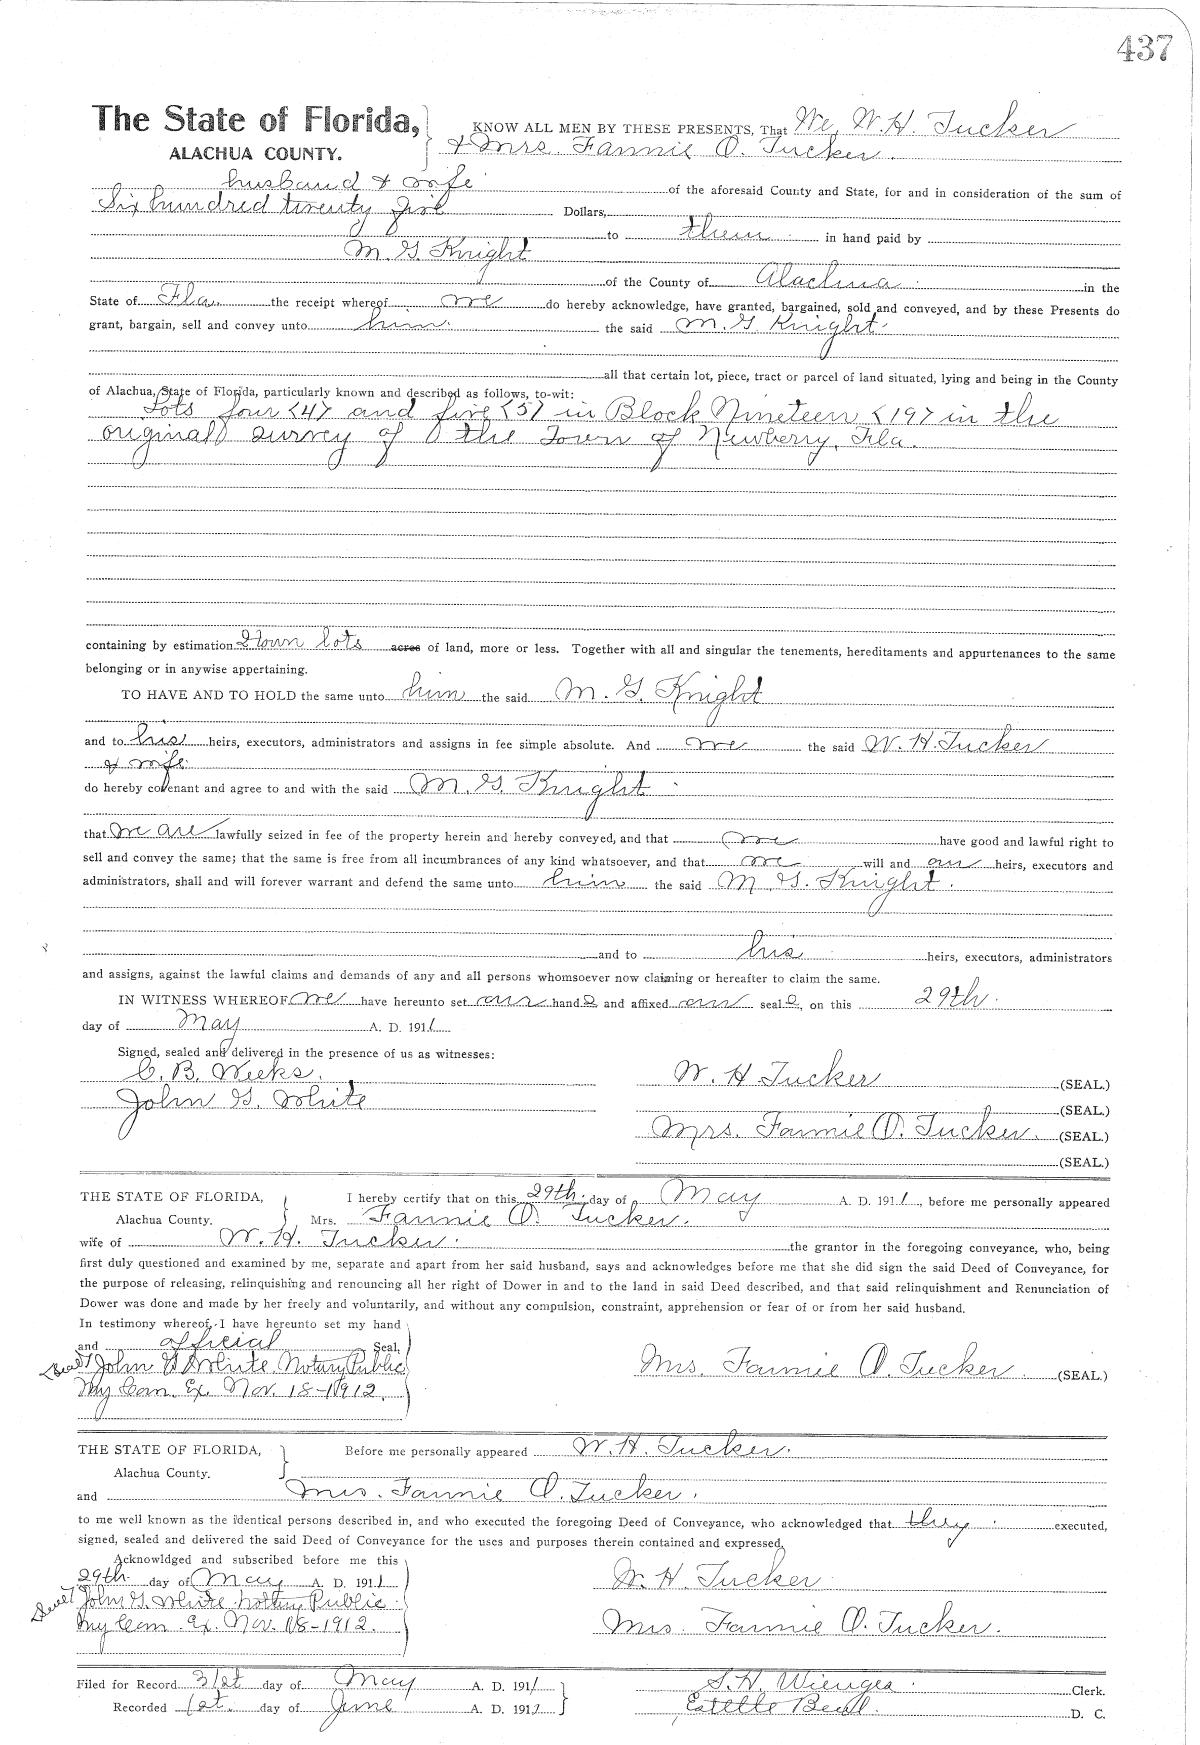 437
The State of Florida, KNOW ALL MEN BY THESE PRESENTS, That We, W. H. Tucker
ALACHUA COUNTY. & Mrs. Fannie O. Tucker.
husband & wife of the aforesaid County and State, for and in consideration of the sum of
Six hundred twenty five Dollars,
to them in hand paid by
M. G. Knight
of the County of Alachua in the
State of Fla. the receipt whereof we do hereby acknowledge, have granted, bargained, sold and conveyed, and by these Presents do
grant, bargain, sell and convey unto him the said M. G. Knight.
all that certain lot, piece, tract or parcel of land situated, lying and being in the County
of Alachua, State of Florida, particularly known and described as follows, to-wit:
Lots four <4> and five <5> in Block Nineteen <19> in the
original survey of the Town of Newberry, Fla.
containing by estimation 2 town lots acres of land, more or less. Together with all and singular the tenements, hereditaments and appurtenances to the same
belonging or in anywise appertaining.
TO HAVE AND TO HOLD the same unto him the said M. G. Knight
and to his heirs, executors, administrators and assigns in fee simple absolute. And we the said W. H. Tucker
& wife
do hereby covenant and agree to and with the said M. G. Knight
that we are lawfully seized in fee of the property herein and hereby conveyed, and that we have good and lawful right to
sell and convey the same; that the same is free from all incumbrances of any kind whatsoever, and that we will and our heirs, executors and
administrators, shall and will forever warrant and defend the same unto him the said M. G. Knight.
and to his heirs, executors, administrators
and assigns, against the lawful claims and demands of any and all persons whomsoever now claiming or hereafter to claim the same.
IN WITNESS WHEREOF we have hereunto set our hands and affixed our seals, on this 29th.
day of May A. D. 1911
Signed, sealed and delivered in the presence of us as witnesses:
C. B. Weeks. W. H. Tucker (SEAL.)
John G. White (SEAL.)
Mrs. Fannie O. Tucker. (SEAL.)
(SEAL.)
THE STATE OF FLORIDA, I hereby certify that on this 29th. day of May A. D. 1911, before me personally appeared
Alachua County. Mrs. Fannie O. Tucker.
wife of W. H. Tucker. the grantor in the foregoing conveyance, who, being
first duly questioned and examined by me, separate and apart from her said husband, says and acknowledges before me that she did sign the said Deed of Conveyance, for
the purpose of releasing, relinquishing and renouncing all her right of Dower in and to the land in said Deed described, and that said relinquishment and Renunciation of
Dower was done and made by her freely and voluntarily, and without any compulsion, constraint, apprehension or fear of or from her said husband.
In testimony whereof, I have hereunto set my hand
and official Seal.
<Seal> John G White Notary Public Mrs. Fannie O. Tucker. (SEAL.)
My Com. Ex. Nov. 18-1912.
THE STATE OF FLORIDA, Before me personally appeared W. H. Tucker.
Alachua County.
and Mrs. Fannie O. Tucker.
to me well known as the identical persons described in, and who executed the foregoing Deed of Conveyance, who acknowledged that they executed,
signed, sealed and delivered the said Deed of Conveyance for the uses and purposes therein contained and expressed.
Acknowldged and subscribed before me this
29th. day of May A. D. 1911 W. H. Tucker
<Seal> John G. White Notary Public.
My Com. Ex. Nov. 18-1912. Mrs. Fannie O. Tucker.
Filed for Record 31st day of May A. D. 1911 S. H. Wienges Clerk.
Recorded 1st. day of June A. D. 1911 Estelle Beall. D. C.